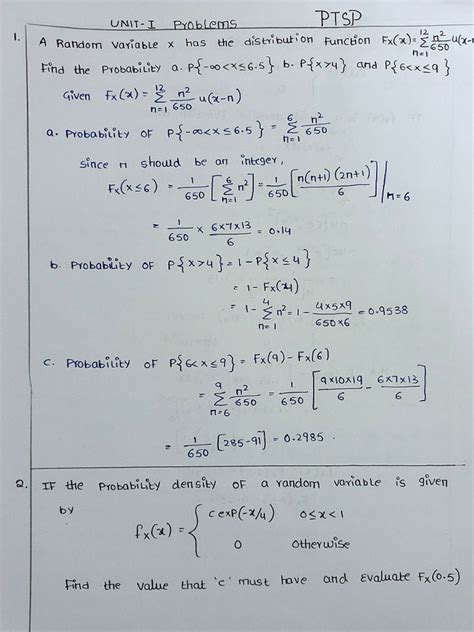 UNIT-I Problems PTSP
1. A Random variable x has the distribution function Fx(x)= 12 Σ n=1 n²/650 u(x-n
Find the Probability a. P{-∞<x≤6.5} b. P{x>4} and P{6<x≤9}
Given Fx(x) = 12 Σ n=1 n²/650 u(x-n)
a. Probability of P{-∞<x≤6.5} = 6 Σ n=1 n²/650
since n should be an integer,
Fx(x≤6) = 1/650 [6 Σ n=1 n²] = 1/650 [n(n+1)(2n+1)/6] | n=6
= 1/650 × 6×7×13/6 = 0.14
b. Probability of P{x>4} = 1-P{x≤4}
= 1- Fx(4)
= 1- 4 Σ n=1 n² = 1- 4×5×9/650×6 = 0.9538
c. Probability of P{6<x≤9} = Fx(9)-Fx(6)
= 9 Σ n=6 n²/650 = 1/650 [9×10×19/6 - 6×7×13/6]
= 1/650 [285-91] = 0.2985.
2. If the Probability density of a random variable is given
by
fx(x) = { c exp(-x/4) 0≤x<1
0 otherwise
Find the value that 'c' must have and evaluate Fx(0.5)